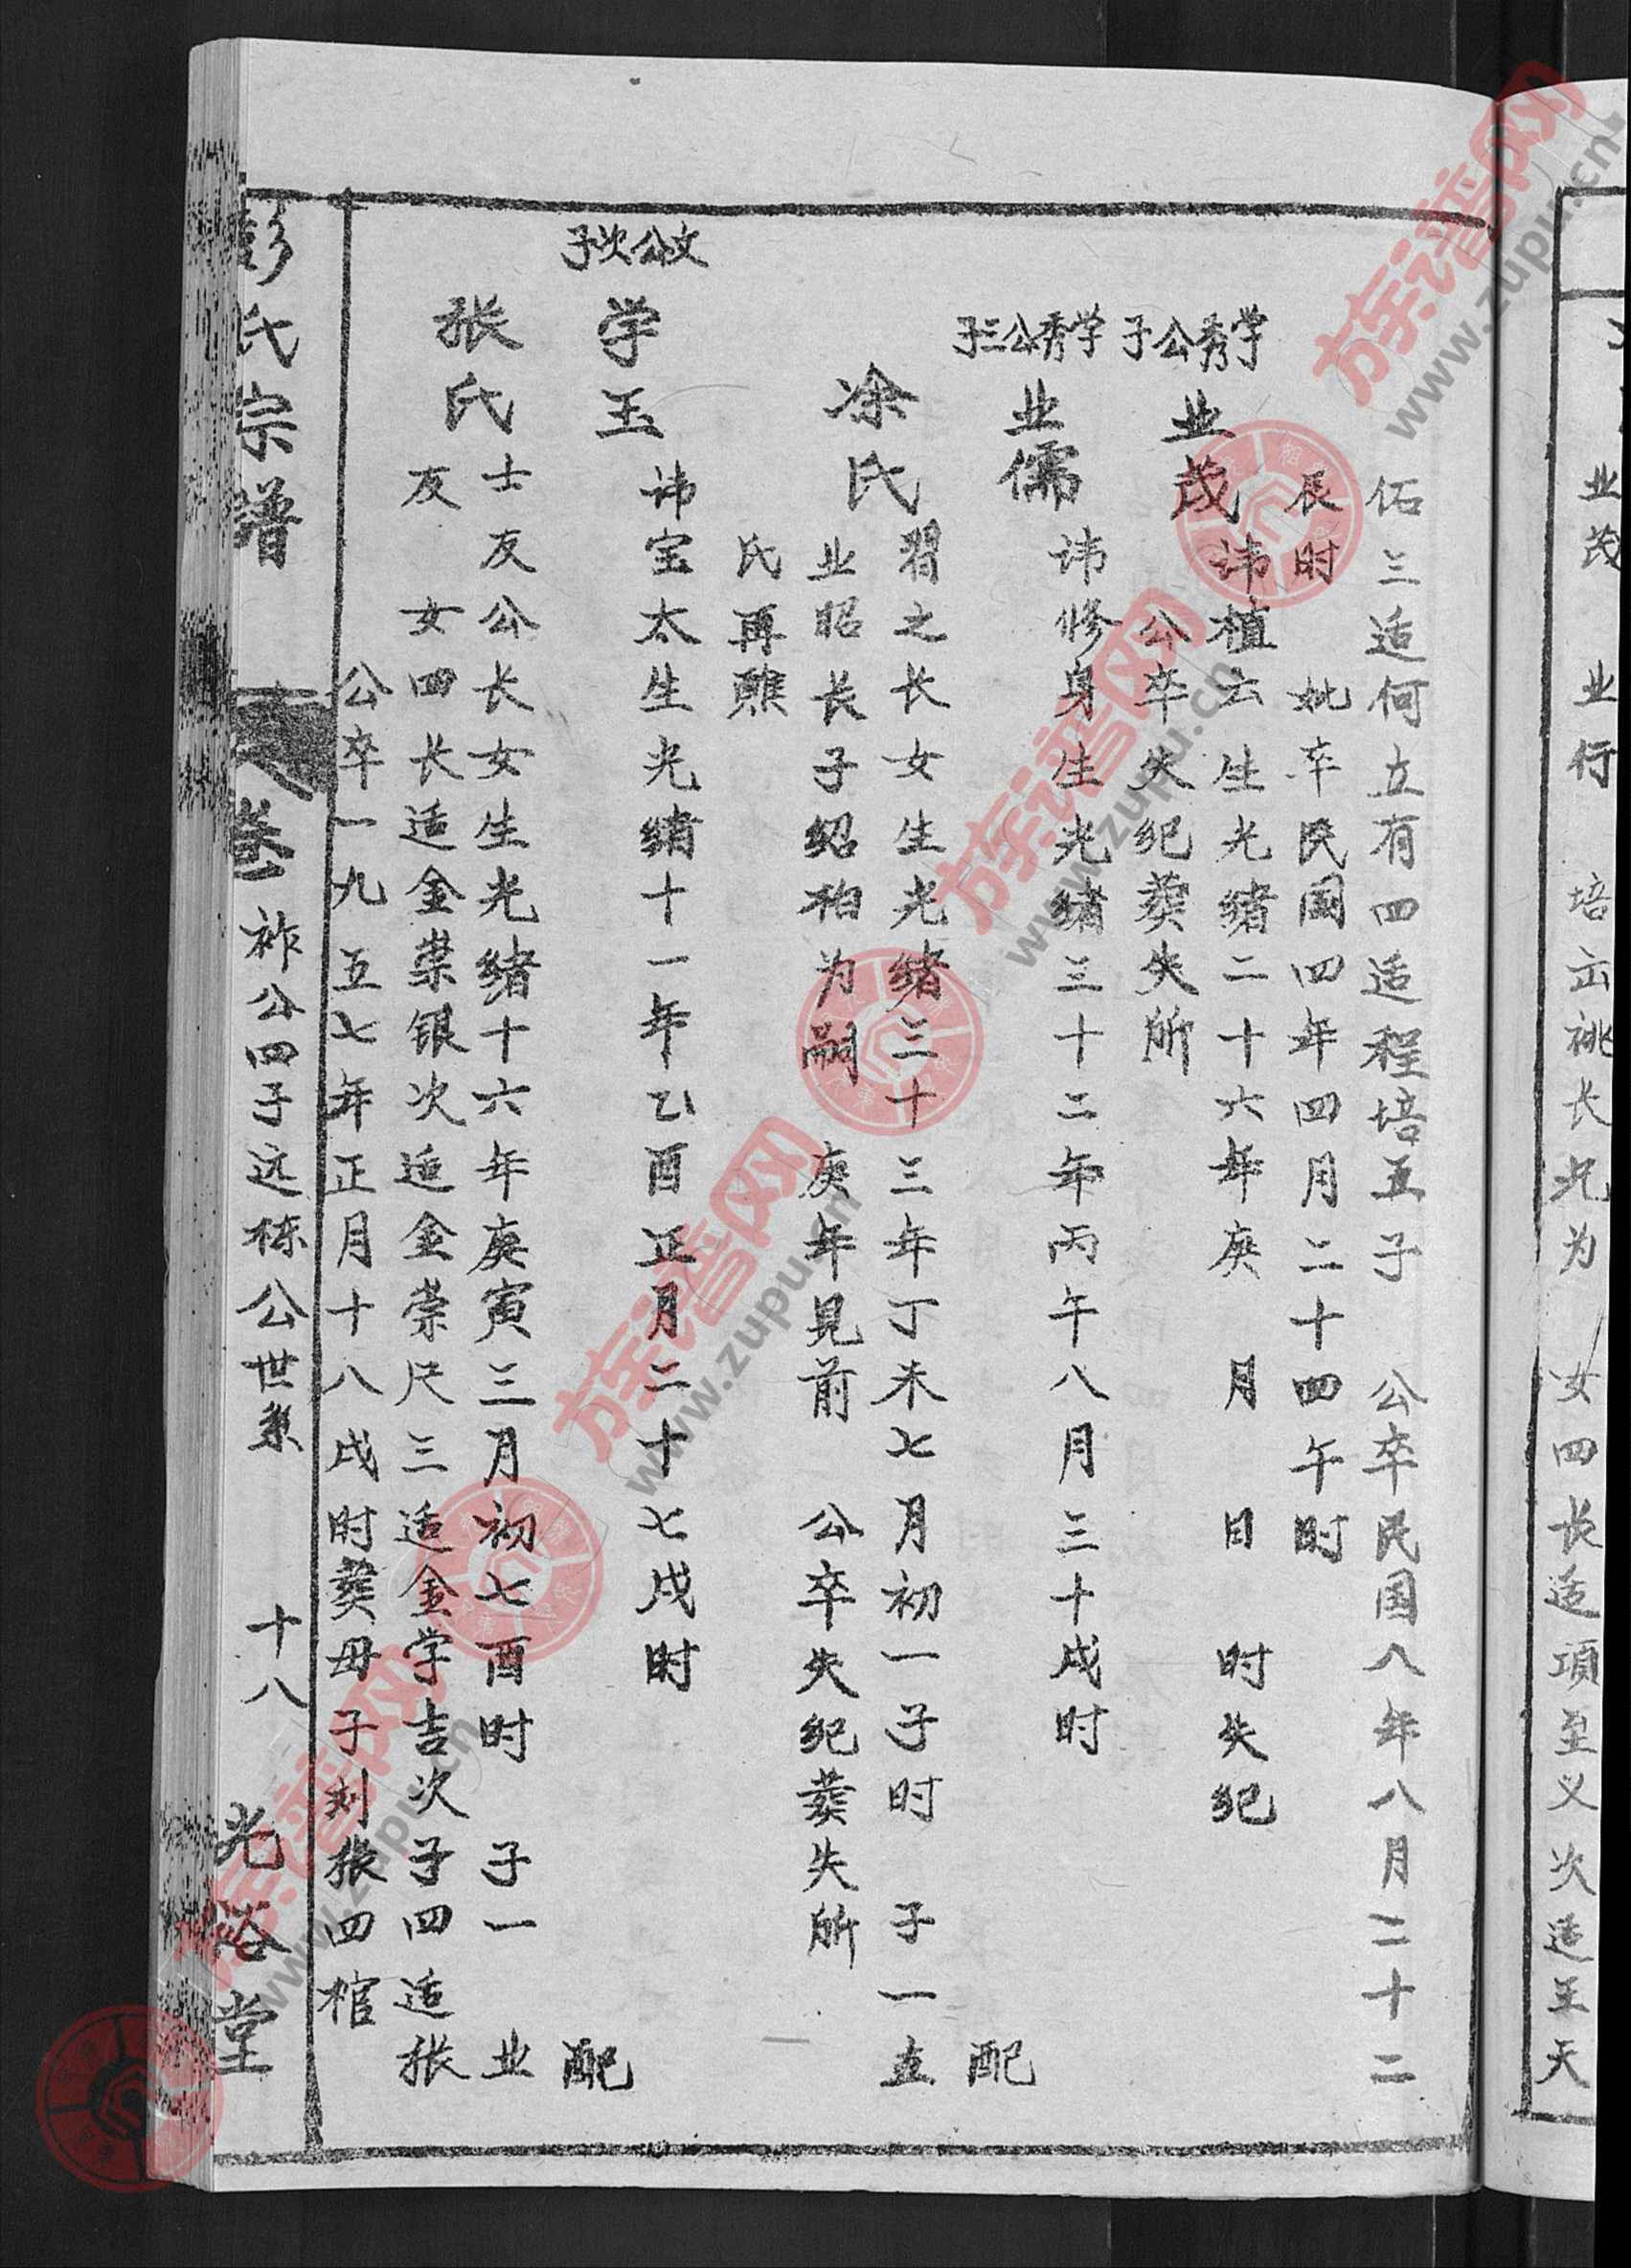 业茂 业行 培 祧长 为 女四长适项至义次适王天
佑三适何立有四适程培五子 公卒民国八年八月二十二
辰时 妣卒民国四年四月二十四午时
学秀公子
业茂
讳植云生光绪二十六年庚 月 日 时失纪
公卒失纪葬失所
学秀公三子
业儒
讳修身生光绪三十二年丙午八月三十戌时
配
涂氏
习之长女生光绪三十三年丁未七月初一子时 子一立
业昭长子绍柏为嗣 庚年见前 公卒失纪葬失所
氏再醮
文公次子
学玉
讳宝太生光绪十一年乙酉正月二十七戌时
配
张氏
士友公长女生光绪十六年庚寅三月初七酉时 子一业
友 女四长适金荣银次适金荣尺三适金学吉次子四适张
公卒一九五七年正月十八戌时葬母子刘张四棺
彭氏宗谱 卷 祚公四子远栋公世系 十八 光裕堂
方族谱网
www.zupu.cn